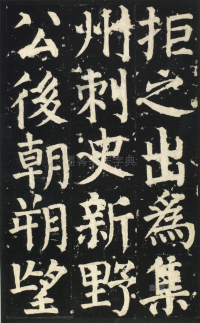 拒之出為集
州刺史新野
公後朝朔望